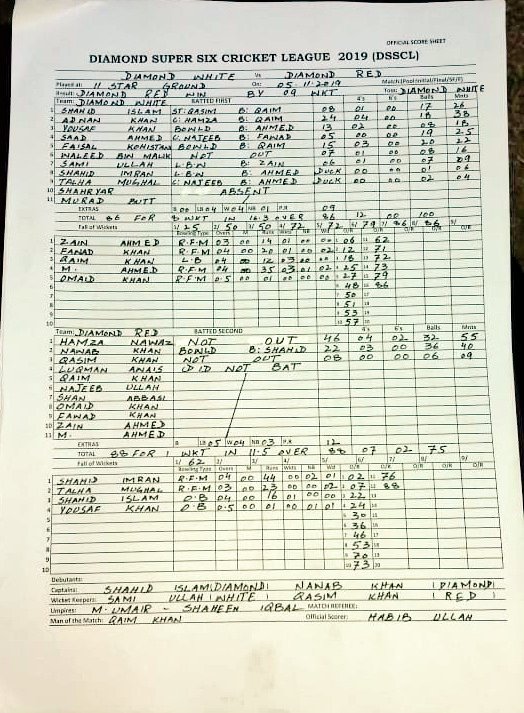 OFFICIAL SCORE SHEET
DIAMOND SUPER SIX CRICKET LEAGUE 2019 (DSSCL)
DIAMOND WHITE Vs DIAMOND RED
Played at: 11 STAR GROUND On: 05-11-2019 Match:(Pool/Initial/Final/SF/E)
Result: DIAMOND RED WIN BY 09 WKT Toss: DIAMOND WHITE
Team: DIAMOND WHITE BATTED FIRST 4's 6's Balls Mnts
1 SHAHID ISLAM ST: QASIM B: QAIM 08 01 00 17 26
2 ADNAN KHAN C: HAMZA B: QAIM 24 04 00 18 38
3 YOUSAF KHAN BOWLD B: AHMED 13 02 00 08 18
4 SAAD AHMED C: NAJEEB B: FAWAD 05 00 00 19 25
5 FAISAL KOHISTANI BOWLD B: QAIM 15 03 00 20 22
6 WALEED BIN MALIK NOT OUT 07 01 00 08 16
7 SAMI ULLAH L.B.W B: ZAIN 06 01 00 07 09
8 SHAHID IMRAN L.B.W B: AHMED DUCK 00 00 01 06
9 TALHA MUGHAL C: NAJEEB B: AHMED DUCK 00 00 02 04
10 SHAHRYAR ABSENT
11 MURAD BUTT
EXTRAS B 00 LB 04 W 04 NB 01 P.R 09
TOTAL 86 FOR 8 WKT IN 16.3 OVER 86 12 00 100
Fall of Wickets 1/ 25 2/ 50 3/ 50 4/ 72 5/ 72 6/ 79 7/ 86 8/ 86 9/
Bowling Type Overs M Runs Wkts NB Wd O/R O/R
1 ZAIN AHMED R.F.M 03 00 14 01 00 00 1 06 11 62
2 FAWAD KHAN R.F.M 04 00 20 01 00 02 2 12 12 71
3 QAIM KHAN L.B 04 00 12 03 00 00 3 18 13 72
4 M. AHMED R.F.M 04 00 35 03 01 02 4 25 14 73
5 OMAID KHAN R.F.M 0.5 00 01 00 00 00 5 27 15 79
6 6 48 16 86
7 7 50 17
8 8 51 18
9 9 53 19
10 10 57 20
Team: DIAMOND RED BATTED SECOND 4's 6's Balls Mnts
1 HAMZA NAWAZ NOT OUT 46 04 02 32 55
2 NAWAB KHAN BOWLD B: SHAHID 22 03 00 36 40
3 QASIM KHAN NOT OUT 08 00 00 06 09
4 LUQMAN ANAIS DID NOT BAT
5 QAIM KHAN
6 NAJEEB ULLAH
7 SHAN ABBASI
8 OMAID KHAN
9 FAWAD KHAN
10 ZAIN AHMED
11 M. AHMED
EXTRAS B LB 05 W 04 NB 03 P.R 12
TOTAL 88 FOR 1 WKT IN 11.5 OVER 88 07 02 75
Fall of Wickets 1/ 62 2/ 3/ 4/ 5/ 6/ 7/ 8/ 9/
Bowling Type Overs M Runs Wkts NB Wd O/R O/R O/R O/R O/R
1 SHAHID IMRAN R.F.M 04 00 44 00 02 01 1 02 11 76
2 TALHA MUGHAL R.F.M 03 00 23 00 00 02 2 07 12 88
3 SHAHID ISLAM O.B 04 00 16 01 00 00 3 22 13
4 YOUSAF KHAN O.B 0.5 00 01 00 01 01 4 24 14
5 5 30 15
6 6 36 16
7 7 46 17
8 8 53 18
9 9 70 19
10 10 73 20
Debutants:
Captains: SHAHID ISLAM (DIAMOND) NANAB KHAN (DIAMOND)
Wicket Keepers: SAMI ULLAH (WHITE) QASIM KHAN (RED)
Umpires: M. UMAIR - SHAHEEN IQBAL MATCH REFEREE:
Man of the Match: QAIM KHAN Official Scorer: HABIB ULLAH